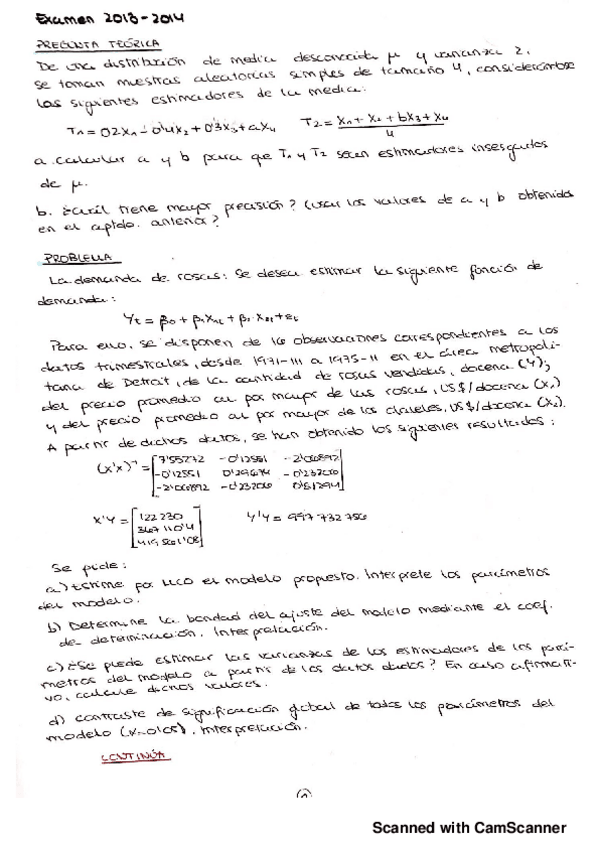 Examen 2013-2014
PREGUNTA TEÓRICA
De una distribución de media desconocida μ y varianza 2,
se toman muestras aleatorias simples de tamaño 4, considerándose
los siguientes estimadores de la media:
T1 = 0'2X1 - 0'4X2 + 0'3X3 + aX4   T2 = (X1 + X2 + bX3 + X4) / 4
a. calcular a y b para que T1 y T2 sean estimadores insesgados
de μ.
b. ¿cuál tiene mayor precisión? (usar los valores de a y b obtenidos
en el aptdo. anterior?
PROBLEMA
La demanda de rosas: Se desea estimar la siguiente función de
demanda:
Yt = β0 + β1X1t + β2·X2t + et
Para ello, se disponen de 16 observaciones correspondientes a los
datos trimestrales, desde 1971-III a 1975-II en el área metropoli-
tana de Detroit, de la cantidad de rosas vendidas, docena (Y),
del precio promedio al por mayor de las rosas, US$/docena (X1)
y del precio promedio al por mayor de los claveles, US$/docena (X2).
A partir de dichos datos, se han obtenido los siguientes resultados:
(X'X)⁻¹ =
-0'12551
-0'12551
X'Y = 122 230
Y'Y = 997 732 756
Se pide:
a) Estime por MCO el modelo propuesto. Interprete los parámetros
del modelo.
b) Determine la bondad del ajuste del modelo mediante el coef.
de determinación. Interpretación.
c) ¿Se puede estimar las varianzas de los estimadores de los pará-
metros del modelo a partir de los datos dados? En caso afirmati-
vo, calcule dichos valores.
d) contraste de significación global de todos los parámetros del
modelo (α=0'05). Interpretación.
CONTINÚA
Scanned with CamScanner